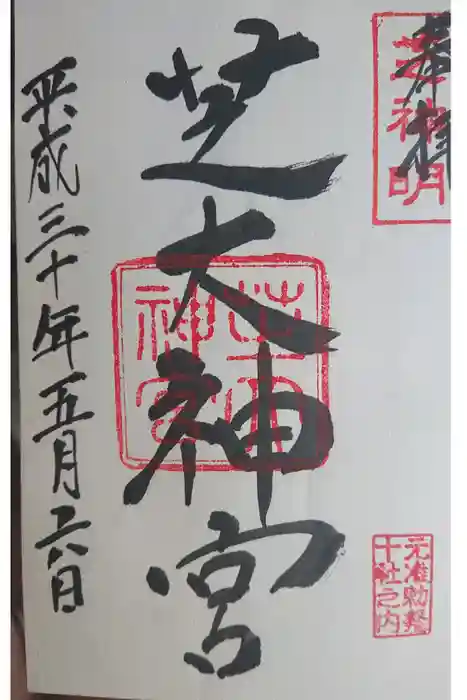 奉拝
芝神明
元准勅祭
十社之内
芝大神宮
芝大
神宮
平成三十年五月二八日